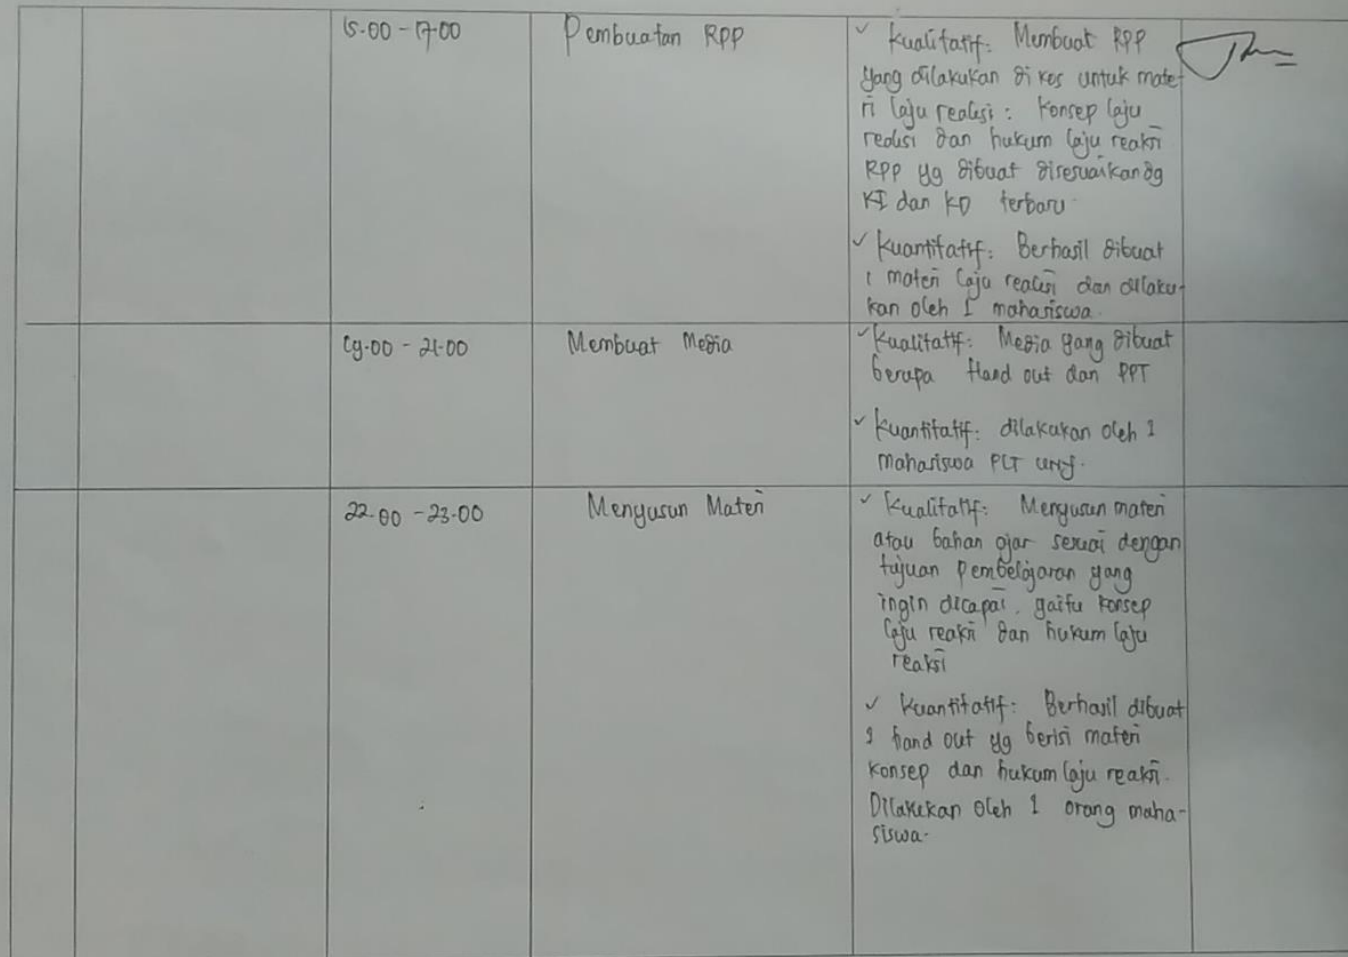 15.00 - 17.00
Pembuatan RPP
✓ Kualitatif: Membuat RPP
yang dilakukan di kos untuk mate-
ri laju reaksi: Konsep laju
reaksi dan hukum laju reaksi
RPP yg dibuat disesuaikan dg
KI dan KD terbaru.
✓ Kuantitatif: Berhasil dibuat
1 materi laju reaksi dan dilaku-
kan oleh 1 mahasiswa.
19.00 - 21.00
Membuat Media
✓ Kualitatif: Media yang dibuat
berupa Hand out dan PPT
✓ Kuantitatif: dilakukan oleh 1
mahasiswa PLT UNY.
22.00 - 23.00
Menyusun Materi
✓ Kualitatif: Menyusun materi
atau bahan ajar sesuai dengan
tujuan pembelajaran yang
ingin dicapai, yaitu konsep
laju reaksi dan hukum laju
reaksi
✓ Kuantitatif: Berhasil dibuat
1 hand out yg berisi materi
konsep dan hukum laju reaksi.
Dilakukan oleh 1 orang maha-
siswa.